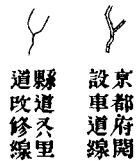 京都府開
設車道線
縣道又里
道改修線